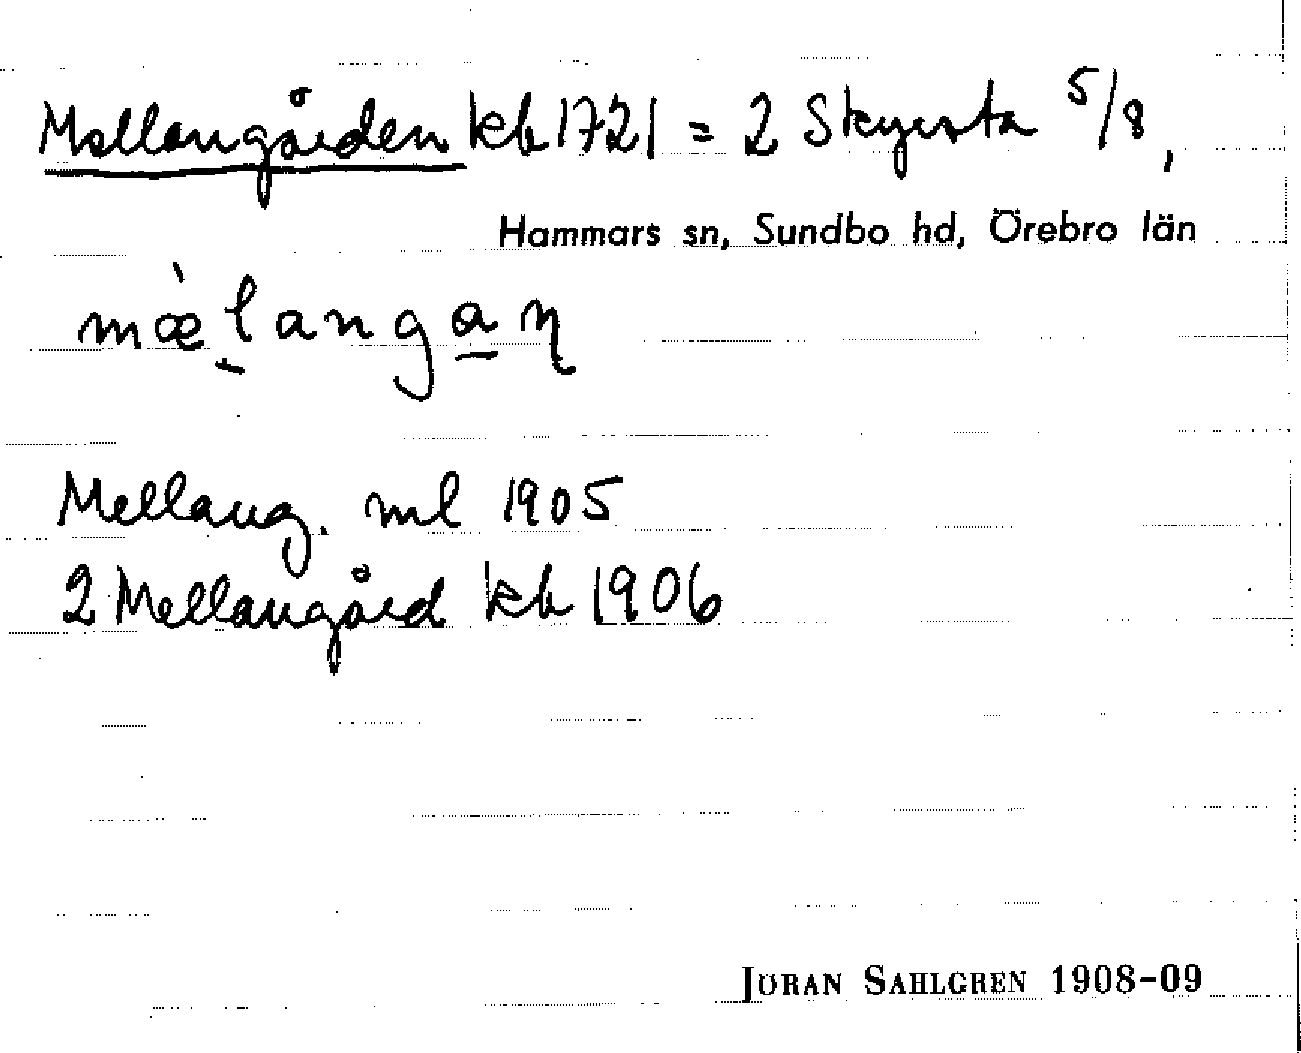 Mellangården kb 1721 = 2 Skyrsta 5/8,
Hammars sn, Sundbo hd, Örebro län
mæ̀l̠anga̠ɳ
Mellang. ml 1905
2 Mellangård kb 1906
JÖRAN SAHLGREN 1908-09